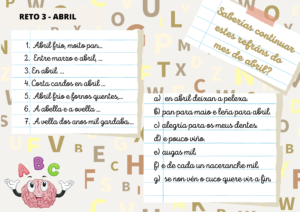 RETO 3 - ABRIL
Saberías continuar
estes refráns do
mes de abril?
1. Abril frío, moito pan...
2. Entre marzo e abril, ...
3. En abril, ...
4. Costa cardos en abril ...
5. Abril frío e fornos quentes,...
6. A abella e a ovella ...
7. A vella dos anos mil gardaba...
a) en abril deixan a pelexa.
b) pan para maio e leña para abril.
c) alegría para os meus dentes.
d) e pouco viño.
e) augas mil.
f) e de cada un naceranche mil.
g) se non vén o cuco quere vir a fin.
A B C